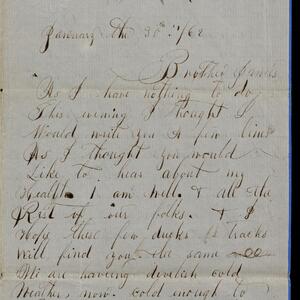 January the 30th /62
Brother James
As I have nothing to doo
This evening I thought I
Would write you A few lines
As I thought you would
Like to hear about my
Health I am well & all the
Rest of our folks. & I
Hope these few ducks tracks
Will find you the same
We are haveing devilish cold
Weather now. cold enough to